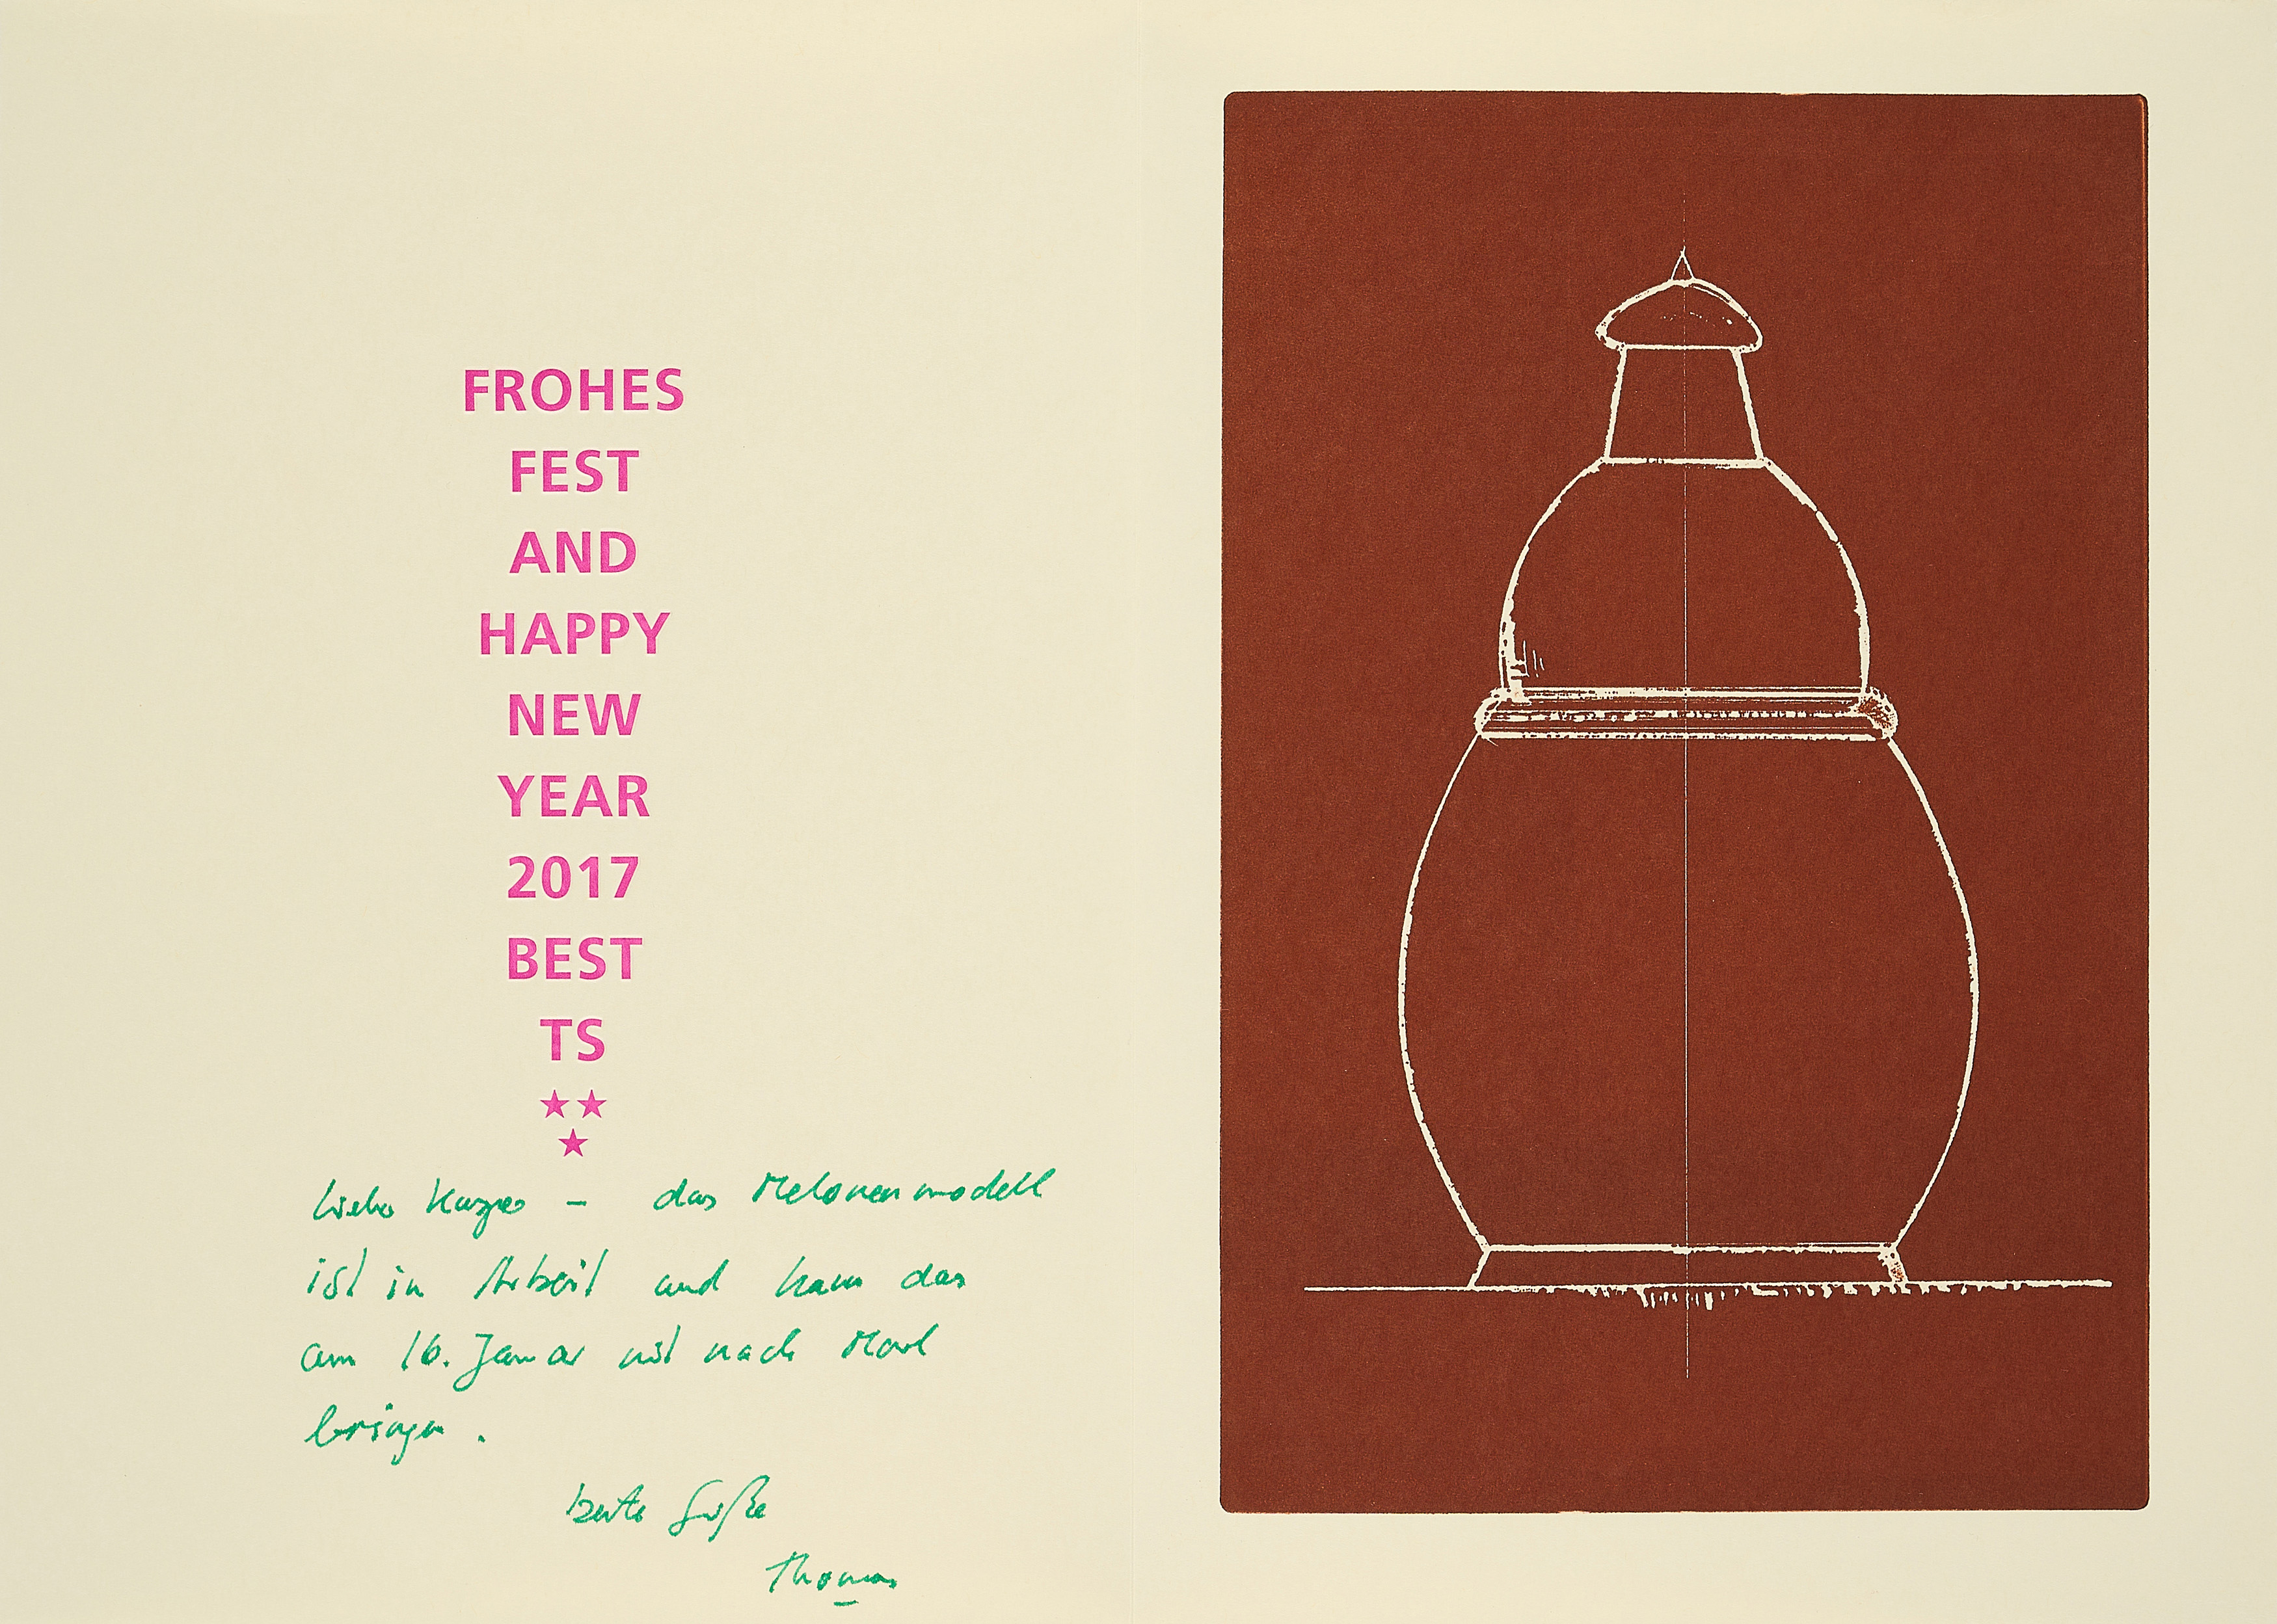 FROHES
FEST
AND
HAPPY
NEW
YEAR
2017
BEST
TS
Lieber Kasper – das Melonenmodell
ist in Arbeit und kann das
am 16. Januar mit nach Marl
bringen.
beste Grüße
Thomas